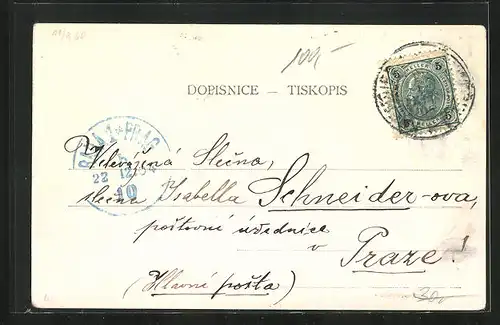 100,-
DOPISNICE – TISKOPIS
5 5
PRAHA 1 PRAG
22 12
10
Velevážená Slečna,
slečna Isabella Schneider-ova,
poštovní úřednice
v
Praze !
(Hlavní pošta)
30,-